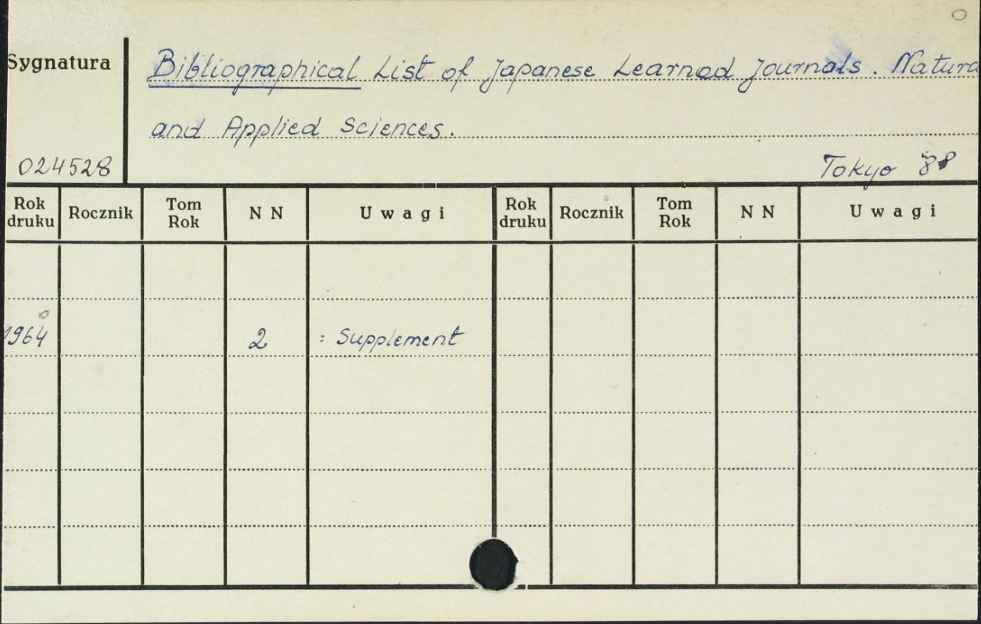 Sygnatura
Bibliographical List of Japanese Learned Journals. Natura
and Applied Sciences.
024528
Tokyo
Rok druku Rocznik Tom Rok N N Uwagi Rok druku Rocznik Tom Rok N N Uwagi
1964 2 : Supplement